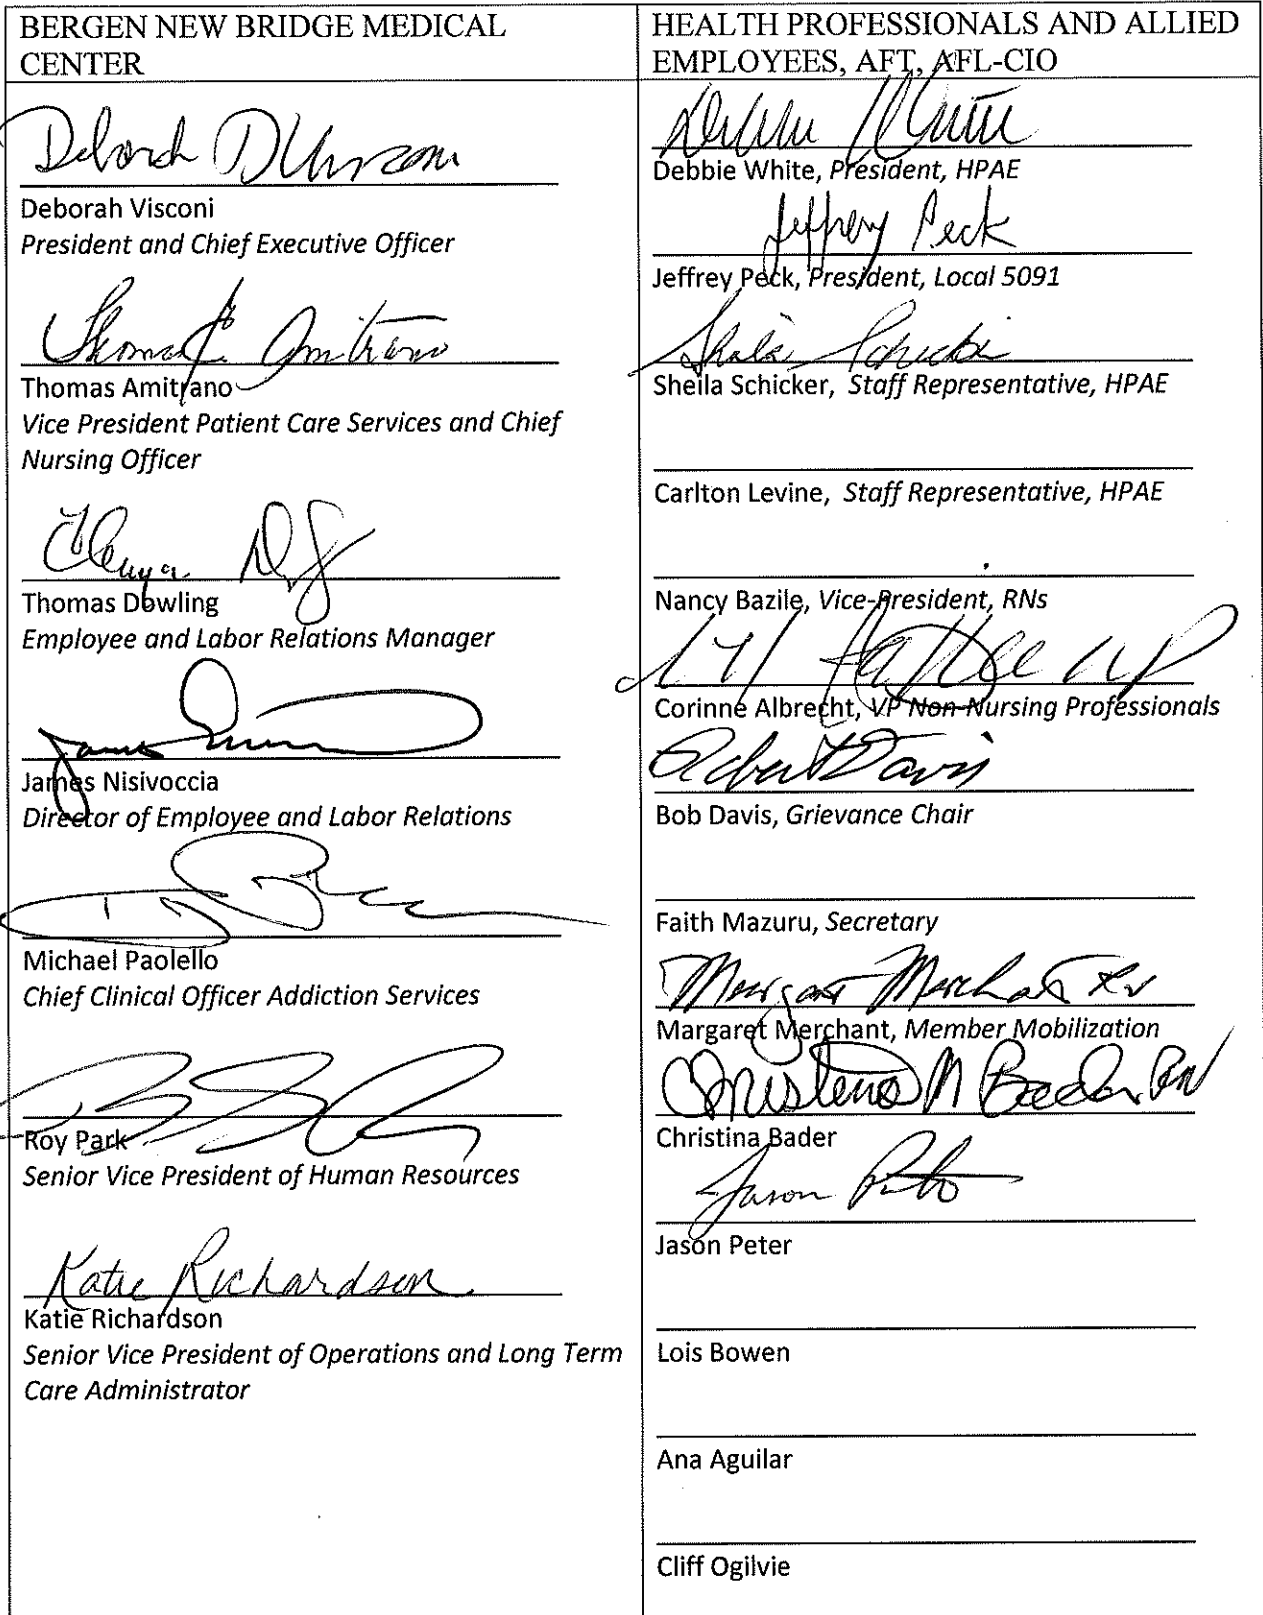 BERGEN NEW BRIDGE MEDICAL
CENTER
Deborah Visconi
Deborah Visconi
President and Chief Executive Officer
Thomas Amitrano
Thomas Amitrano
Vice President Patient Care Services and Chief
Nursing Officer
Thomas Dowling
Employee and Labor Relations Manager
James
James Nisivoccia
Director of Employee and Labor Relations
Michael Paolello
Chief Clinical Officer Addiction Services
Roy Park
Senior Vice President of Human Resources
Katie Richardson
Katie Richardson
Senior Vice President of Operations and Long Term
Care Administrator
HEALTH PROFESSIONALS AND ALLIED
EMPLOYEES, AFT, AFL-CIO
Debbie White
Debbie White, President, HPAE
Jeffrey Peck
Jeffrey Peck, President, Local 5091
Sheila Schicker
Sheila Schicker, Staff Representative, HPAE
Carlton Levine, Staff Representative, HPAE
Nancy Bazile, Vice-President, RNs
VP
Corinne Albrecht, VP Non-Nursing Professionals
Robert Davis
Bob Davis, Grievance Chair
Faith Mazuru, Secretary
Margaret Merchant RN
Margaret Merchant, Member Mobilization
Christina M Bader RN
Christina Bader
Jason
Jason Peter
Lois Bowen
Ana Aguilar
Cliff Ogilvie